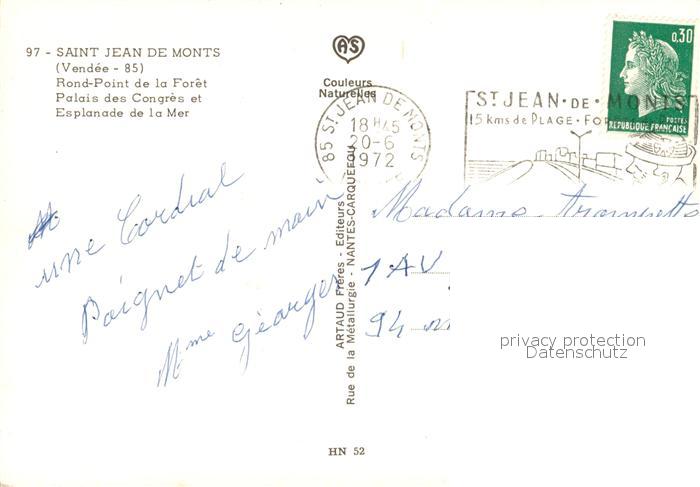 97 - SAINT JEAN DE MONTS
(Vendée - 85)
Rond-Point de la Forêt
Palais des Congrès et
Esplanade de la Mer
AS
Couleurs
Naturelles
85 ST JEAN DE MONTS
18 H45
20-6
1972
ST JEAN · DE · MONTS
15 kms de PLAGE · FORÊT
0,30
POSTES
REPUBLIQUE FRANÇAISE
une Cordial
Poignet de main
Mme Géorges
Madame
1 AV
94
ARTAUD Frères - Editeurs
Rue de la Métallurgie - NANTES-CARQUEFOU
HN 52
privacy protection
Datenschutz